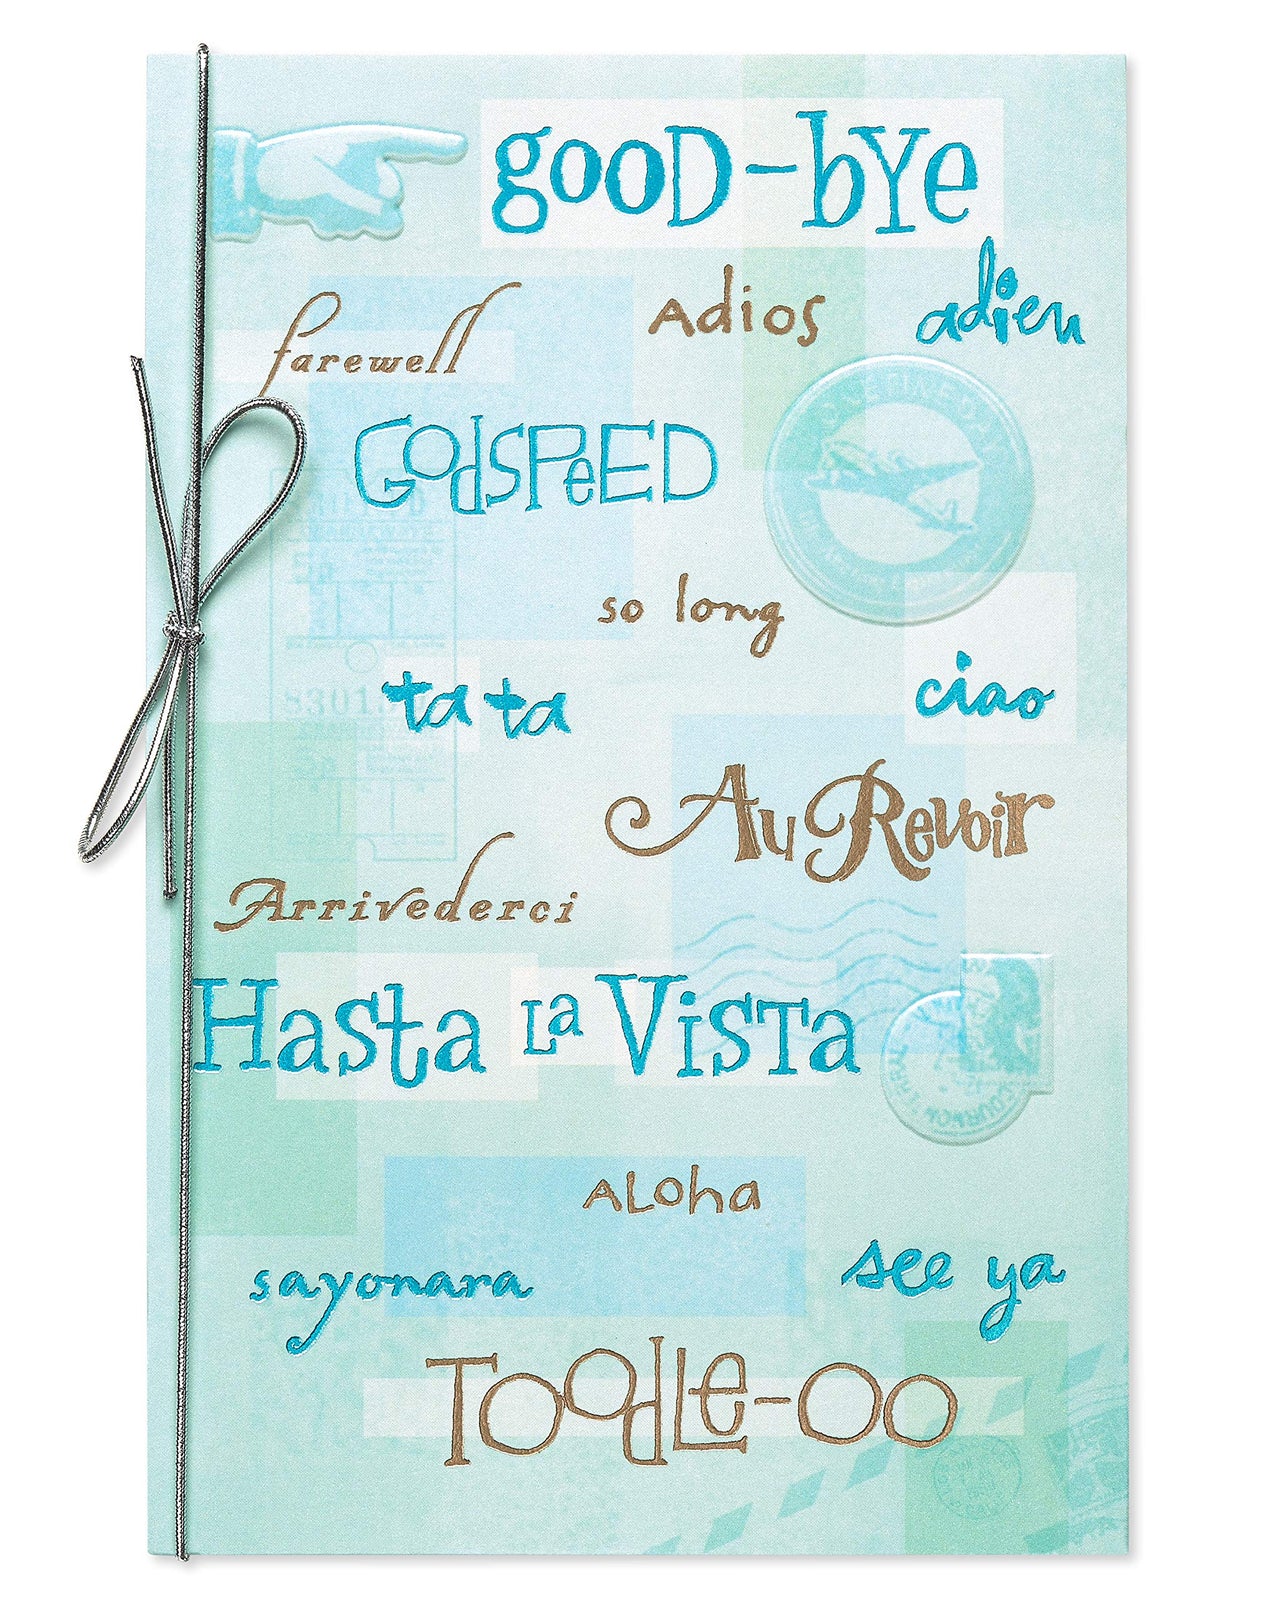 good-bye
Adios adieu
farewell
GodspeED
so long
ta ta ciao
Au Revoir
Arrivederci
Hasta La Vista
Aloha
sayonara see ya
Toodle-oo